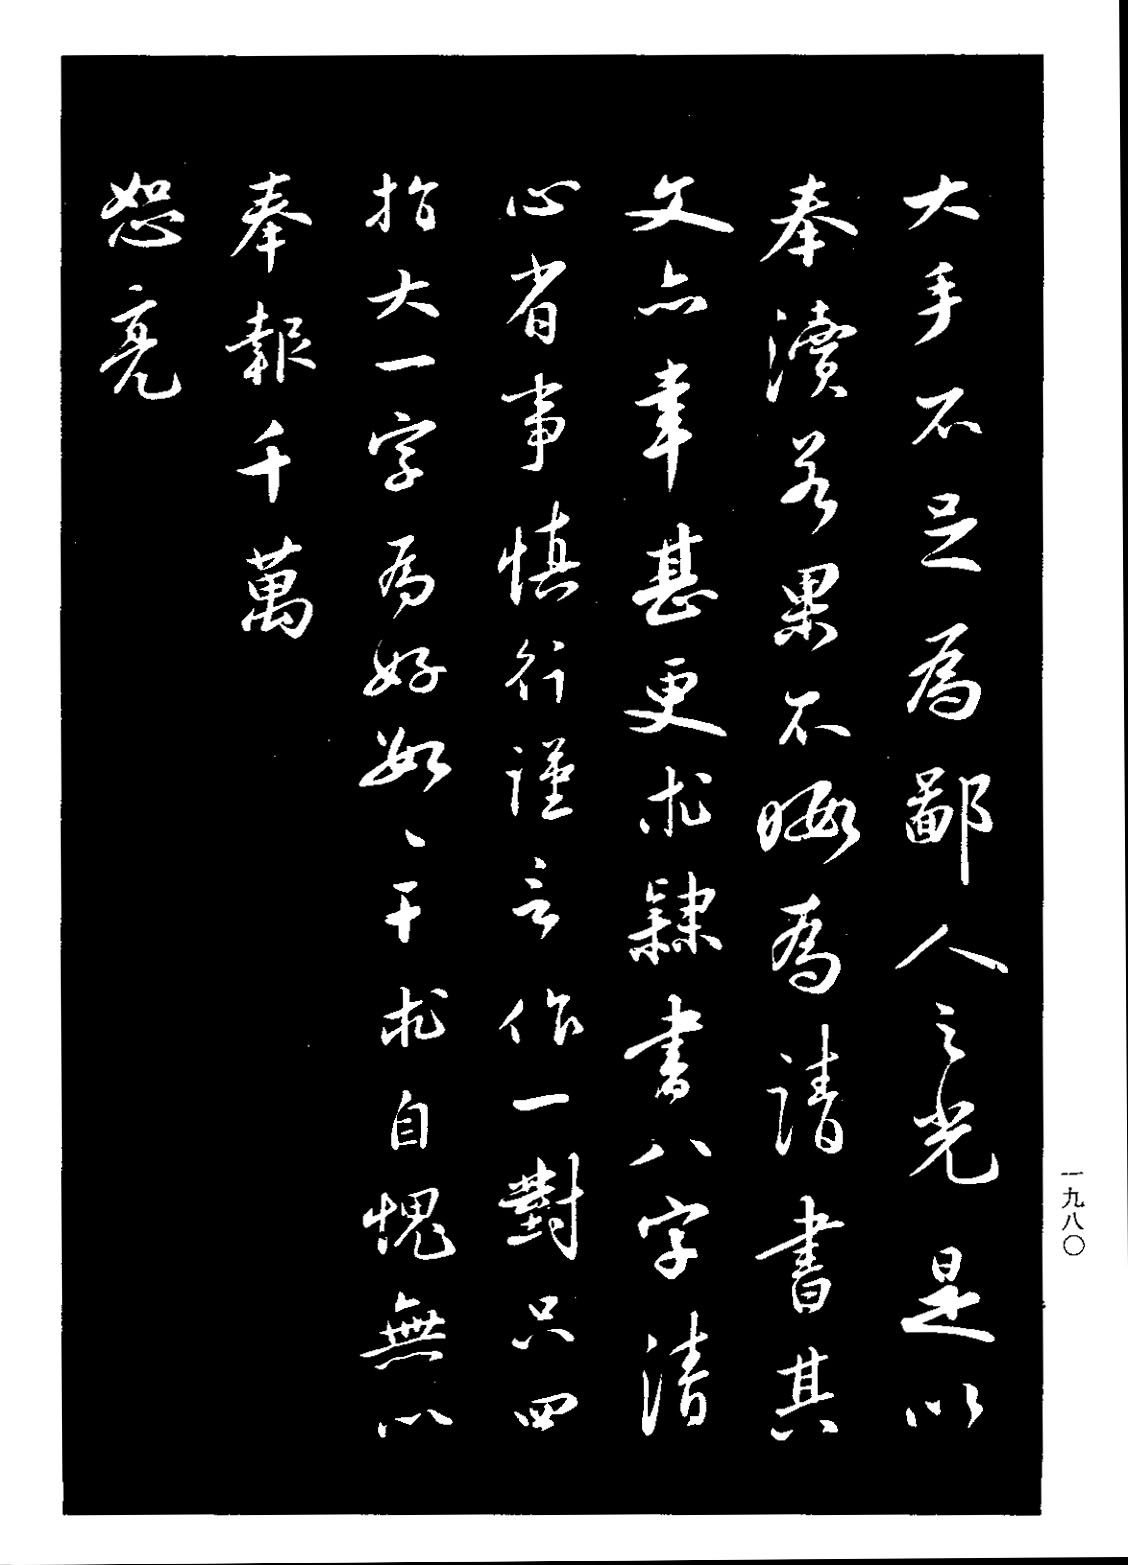 大手不足為鄙人之光是以
奉瀆若果不暇為請書其
文亦幸甚更求隸書八字清
心省事慎行謹言作一對只四
指大一字為好如〻干求自愧無以
奉報千萬
恕亮
一九八〇